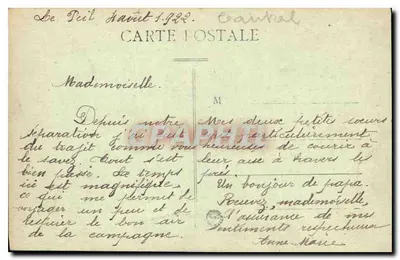 Le Teil 4 août 1922
CARTE POSTALE
Mademoiselle.
M
Depuis notre
séparation j'ai
du trajet comme vous
le savez. Tout s'est
bien passé. Le temps
ici est magnifique
ce qui me permet de
voyager un peu et de
le bon air
de la campagne.
Mes deux petits soeurs
particulièrement
heureuses de courir à
leur aise à travers les
prés.
Un bonjour de papa.
Recevez, mademoiselle,
l'assurance de mes
sentiments respectueux
Anne-Marie